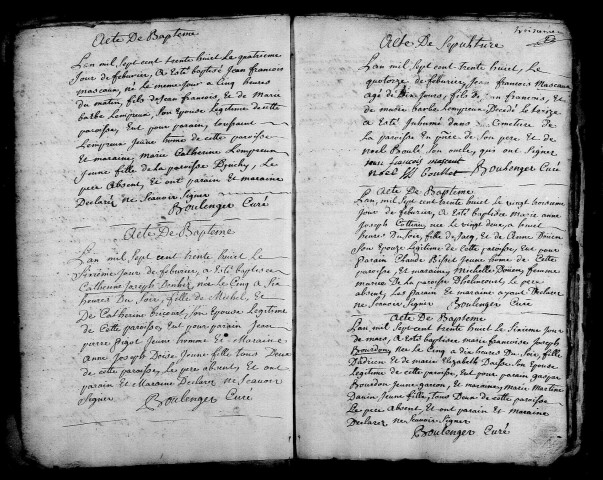 Acte De Baptême
L'an mil sept cent trente huict le quatrième
Jour de febvrier, a Esté baptisé Jean françois
mascaux, né le meme jour a Cinq heures
du matin, fils de Jean françois, Et de Marie
barbe Lempreux, Son Epouse Legitime de cette
paroisse, Eut pour parain, toussaint
Lempreux Jeune home de cette paroisse
et maraine, Marie Catherine Lempreux
Jeune fille de la paroisse Le
pere Absent, Et ont parain et maraine
Declaré ne Scavoir Signer
Boulenger Curé
Acte De Baptême
L'an mil Sept cent trente huict le
Sixieme Jour de febvrier, a Esté baptisee
Catherine Joseph née le Cinq a Six
heures Du Soir, fille de Michel, Et
De Catherine Son Epouse Legitime
de Cette paroisse, Eut pour parain Jean
pierre Jeune homme Et Maraine
Anne Joseph Doise Jeune fille tous Deux
de cette paroisse, Le pere absent, Et ont
parain Et Maraine Declaré ne Scavoir
Signer
Boulenger Curé
Acte De Sepulture
L'an mil Sept cent trente huict, Le
quatorze de febvrier, Jean francois Mascaux
agé de Dix Jours, fils de Jean francois, Et
de marie barbe Lempreux Decedé Le treize
a Esté Inhumé dans Cimetiere de
la paroisse En présence de Son pere Et de
noel Son oncle, qui ont Signer
Jean francois mascaut
noel Boulenger Curé
Acte De Baptême
L'an, mil Sept cent trente huict le vingt troisieme
Jour de febvrier, a Esté baptisee Marie anne
Joseph née le vingt deux, a huict
heures Du Soir, fille de Jacq, Et de Anne
Son Epouse Legitime de Cette paroisse, Eut pour
parain Claude Jeune home de Cette
paroisse, et maraine, Michelle femme
mariée De la paroisse Le pere
absent, Les parain Et maraine ayant Declaré
ne Scavoir Signer Boulenger Curé
Acte De Baptême
L'an mil Sept cent trente huict le Sixieme Jour
de mars, a Esté baptisee marie francoise Joseph
Bourdon, née le Cinq a dix heures Du Soir, fille
D'adrien Et de marie Elizabeth Son Epouse
Legitime de cette paroisse, Eut pour parain gaspar
Bourdon Jeune garcon, Et maraine, marie Martine
Jeune fille, tous Deux de Cette paroisse
Le pere Absent, Et ont parain Et Maraine
Declarez ne Scavoir Signer
Boulenger Curé